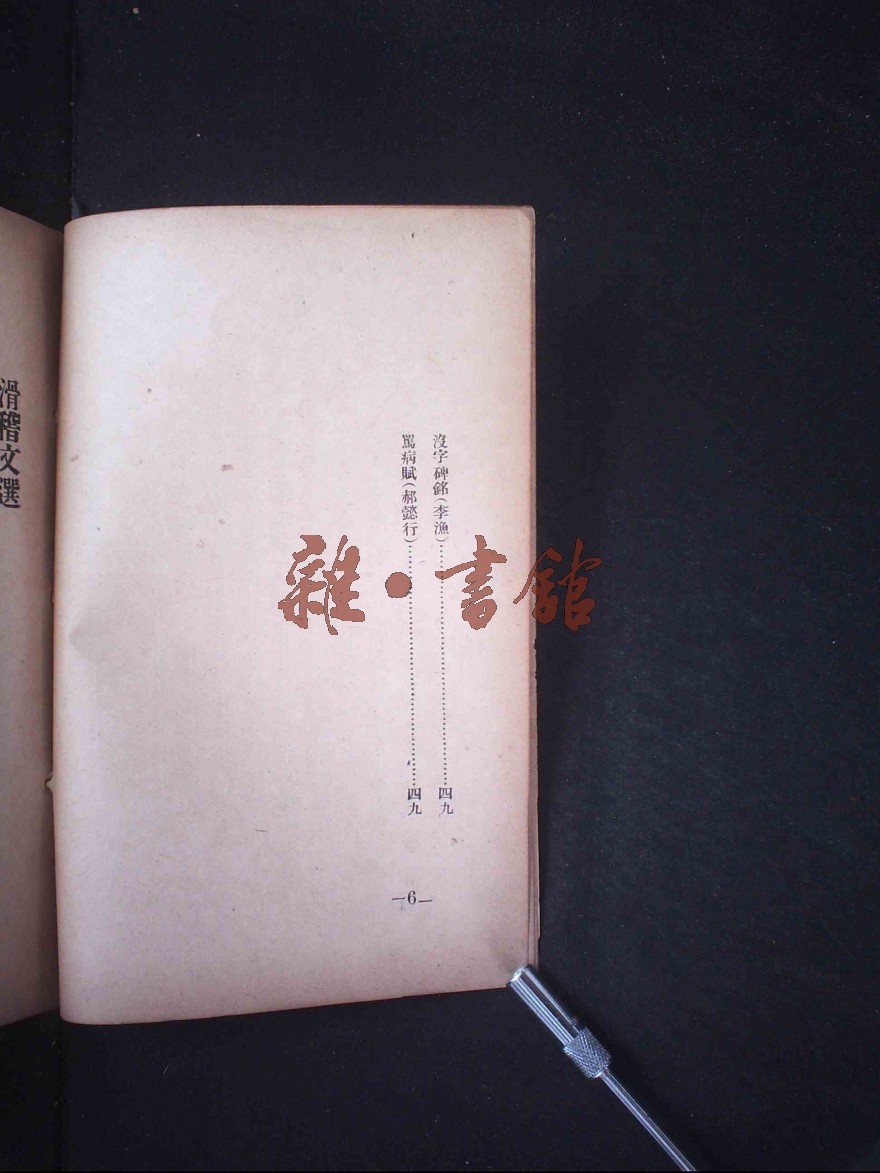 沒字碑銘（李漁）……………………………四九
罵病賦（郝懿行）……………………………四九
—6—
滑稽文選
雜·書館